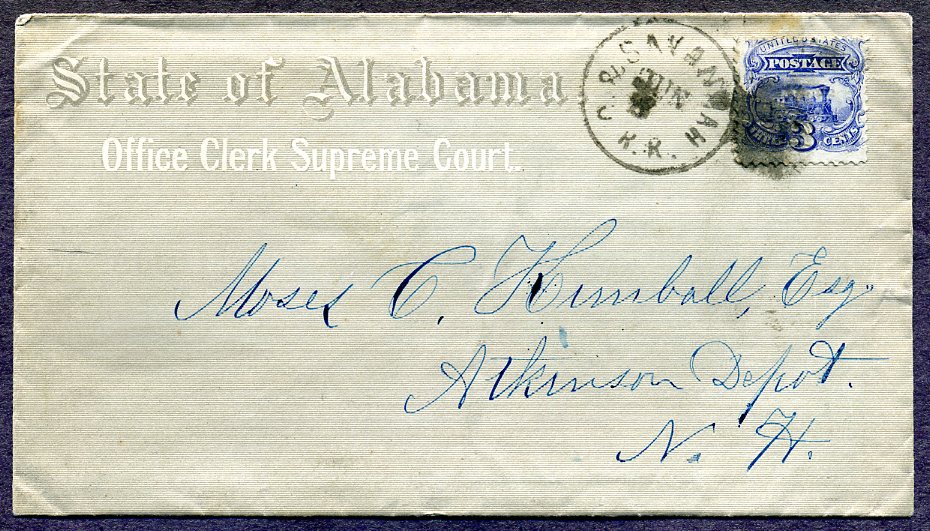 State of Alabama
Office Clerk Supreme Court.
C. & SAVANNAH R. R.
JUN
UNITED STATES
POSTAGE
3
CENTS
Moses C. Kimball, Esq.
Atkinson Depot.
N. H.